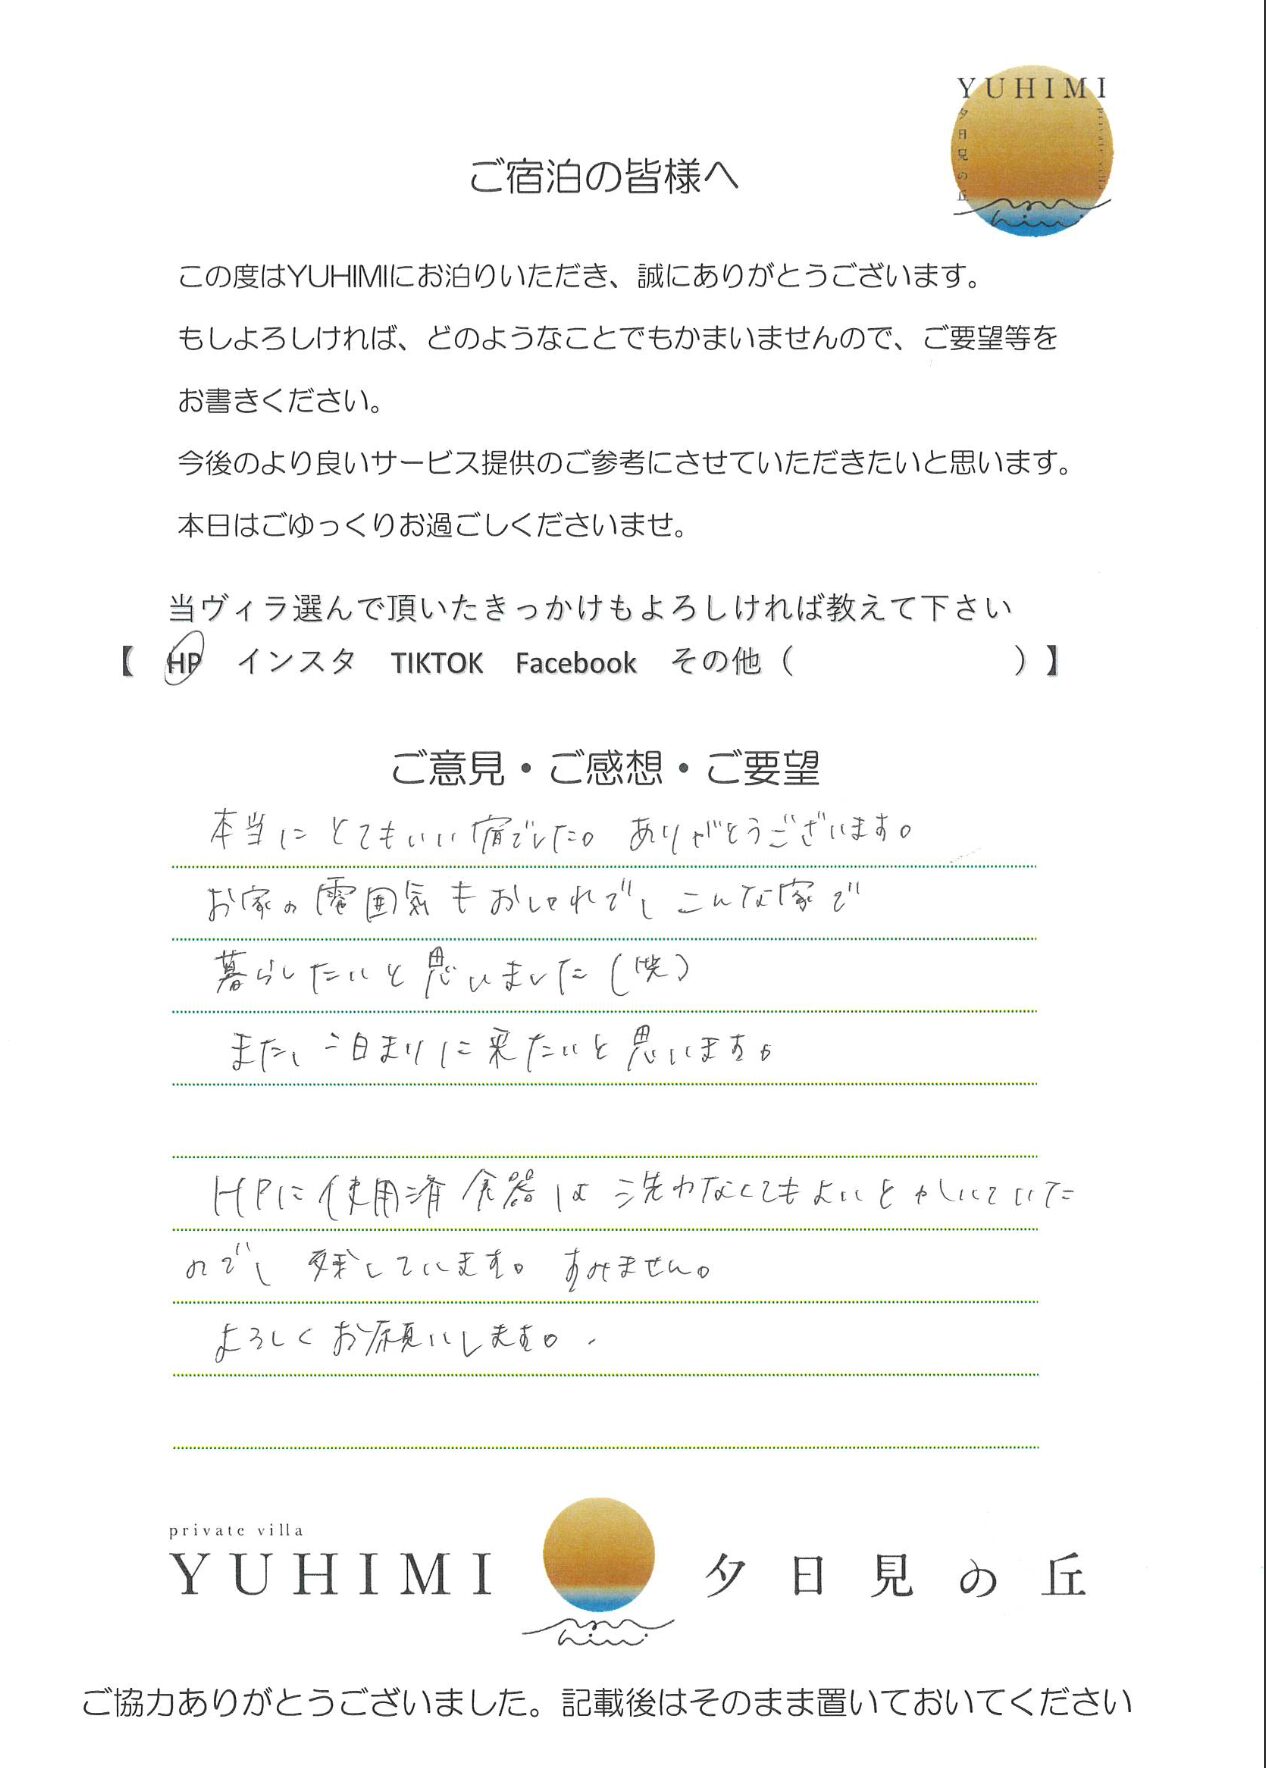 YUHIMI
夕日見の丘
private villa
ご宿泊の皆様へ
この度はYUHIMIにお泊りいただき、誠にありがとうございます。
もしよろしければ、どのようなことでもかまいませんので、ご要望等を
お書きください。
今後のより良いサービス提供のご参考にさせていただきたいと思います。
本日はごゆっくりお過ごしくださいませ。
当ヴィラ選んで頂いたきっかけもよろしければ教えて下さい
【 HP インスタ TIKTOK Facebook その他（ ）】
ご意見・ご感想・ご要望
本当にとてもいい宿でした。ありがとうございます。
お家の雰囲気もおしゃれで、こんな家で
暮らしたいと思いました（笑）
また、泊まりに来たいと思います。
HPに使用済食器は洗わなくてもよいとかいていた
ので、残しています。すみません。
よろしくお願いします。
private villa
YUHIMI 夕日見の丘
ご協力ありがとうございました。記載後はそのまま置いておいてください